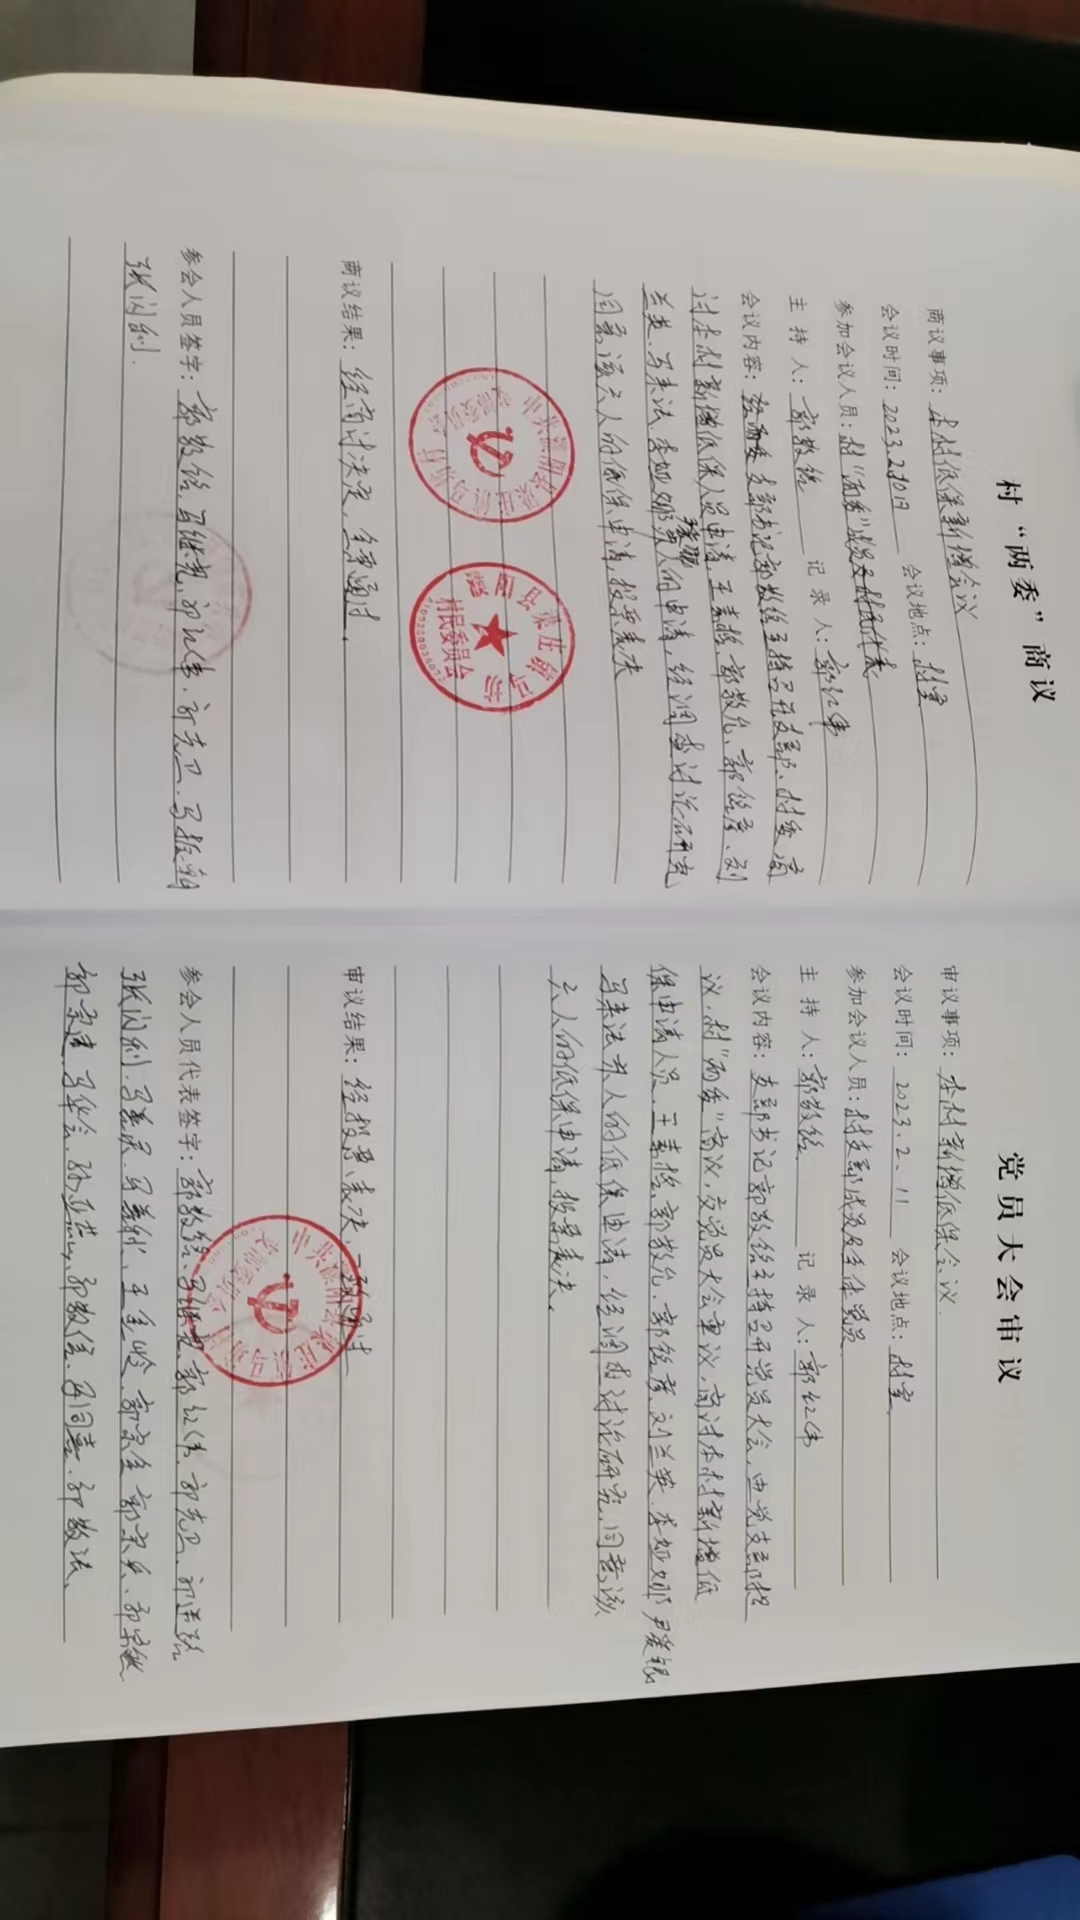 村“两委”商议
商议事项：本村低保新增会议
会议时间：2023.2.10日 会议地点：村室
参加会议人员：村“两委”成员及村民代表
主持人：郭敬铭 记录人：郭红伟
会议内容：经两委支部书记郭敬铭主持召开支部、村委、商
讨本村新增低保人员申请，王素格、郭敬允、郭铭彦、刘
尹爱银
兰英、马来法、李娅娜等人的申请，经调查讨论研究
同意该六人的低保申请，投票表决
中共濮阳县梁庄镇马坊村
支部委员会
濮阳县梁庄镇马坊
村民委员会
商议结果：经商讨决定，全票通过。
参会人员签字：郭敬铭、马继宽、郭红伟、郭克卫、马振朝
张闪利.
党员大会审议
审议事项：本村新增低保会议.
会议时间：2023.2.11 会议地点：村室.
参加会议人员：村支部成员及全体党员
主持人：郭敬铭. 记录人：郭红伟
会议内容：支部书记郭敬铭主持召开党员大会，由党支部提
议，村“两委”商议，交党员大会审议，商讨本村新增低
保申请人员、王素格、郭敬允、郭铭彦、刘兰英、李娅娜 尹爱银
马来法等人的低保申请，经调查讨论研究，同意该
六人的低保申请，投票表决。
审议结果：经投票表决，一致通过
中共濮阳县梁庄镇马坊村
支部委员会
参会人员代表签字：郭敬铭、马继宽、郭红伟、郭克卫、郭进路
张闪利、马善灵、马善秋、王金岭、郭宗全 郭宗兵、郭宗
郭宗建、马华会、孙亚燕、郭敬信、马同喜、郭敬法、